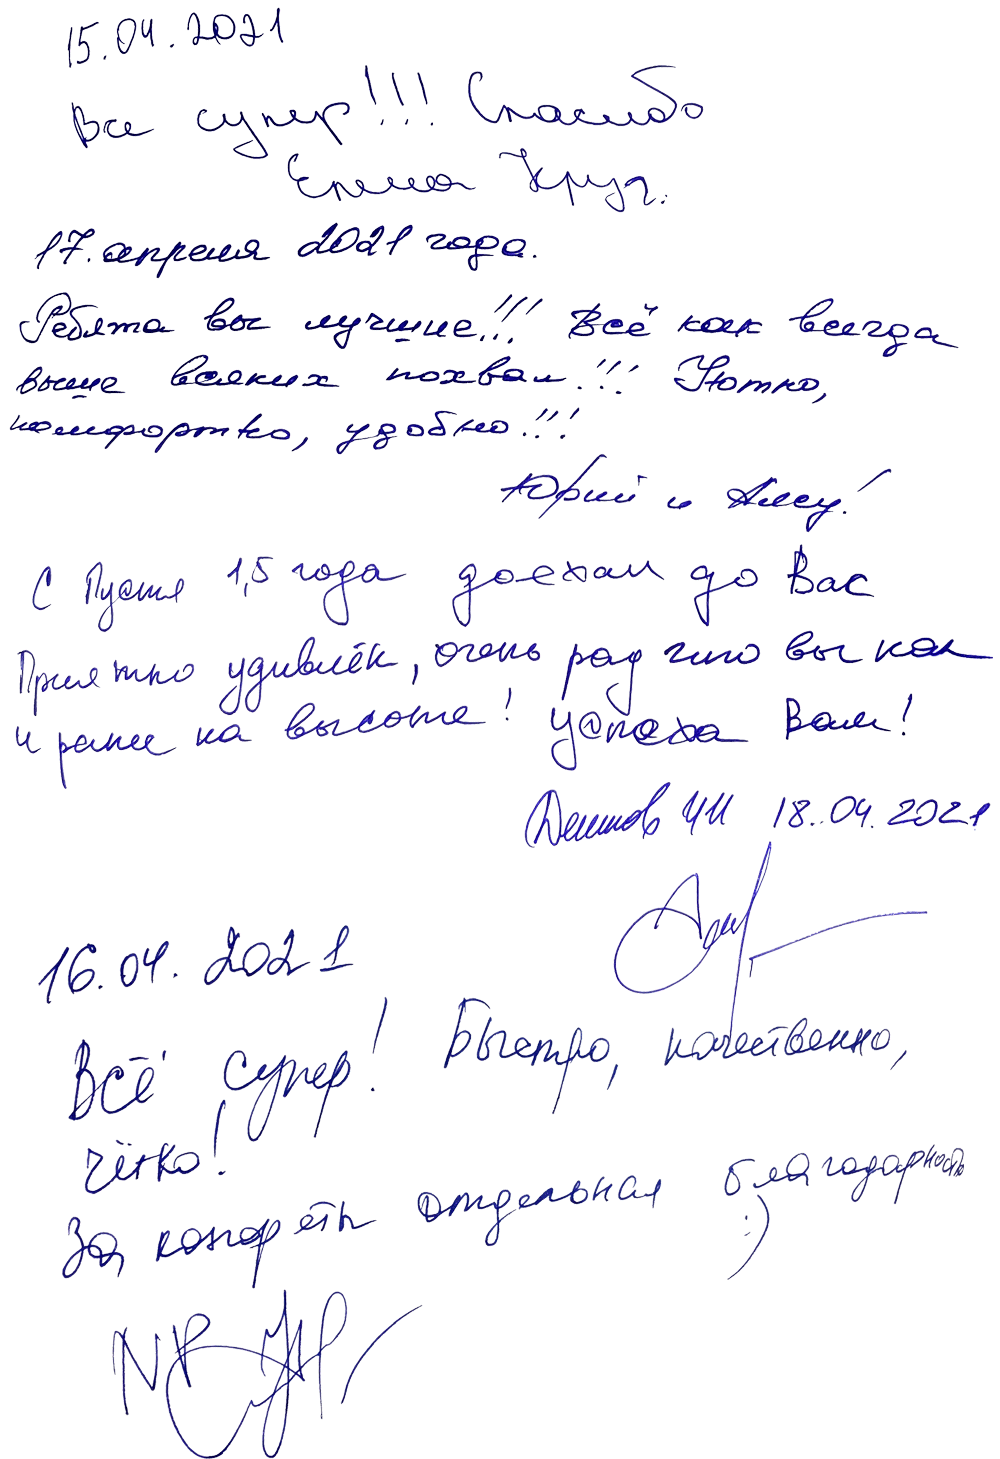 15.04.2021
Все супер!!! Спасибо
Елена Круг.
17. апреля 2021 года.
Ребята вы лучшие!!! Всё как всегда
выше всяких похвал!!! Уютно,
комфортно, удобно!!!
Юрий и
С Пустя 1,5 года доехал до Вас
Приятно удивлён, очень рад что вы как
и ранее на высоте! успеха Вам!
18.04.2021
16.04.2021
Всё супер! Быстро, качественно,
чётко!
За отдельная благодарность
:)